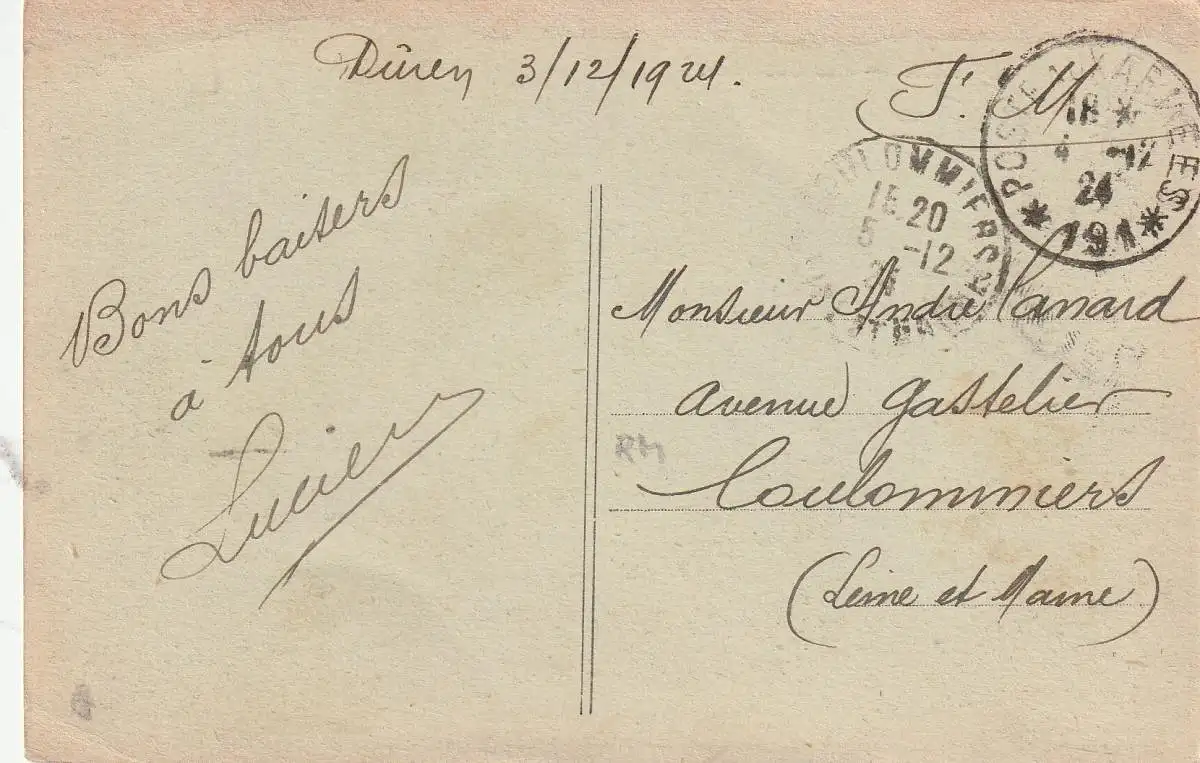 Düren 3/12/1924.
F. M
POSTE AUX ARMEES
18 *
4 -12
24
* 191 *
COULOMMIERS
15 20
5 -12
Bons baisers
à tous
Lucien
Monsieur André Canard
avenue Gastelier
Coulommiers
(Seine et Marne)
RM